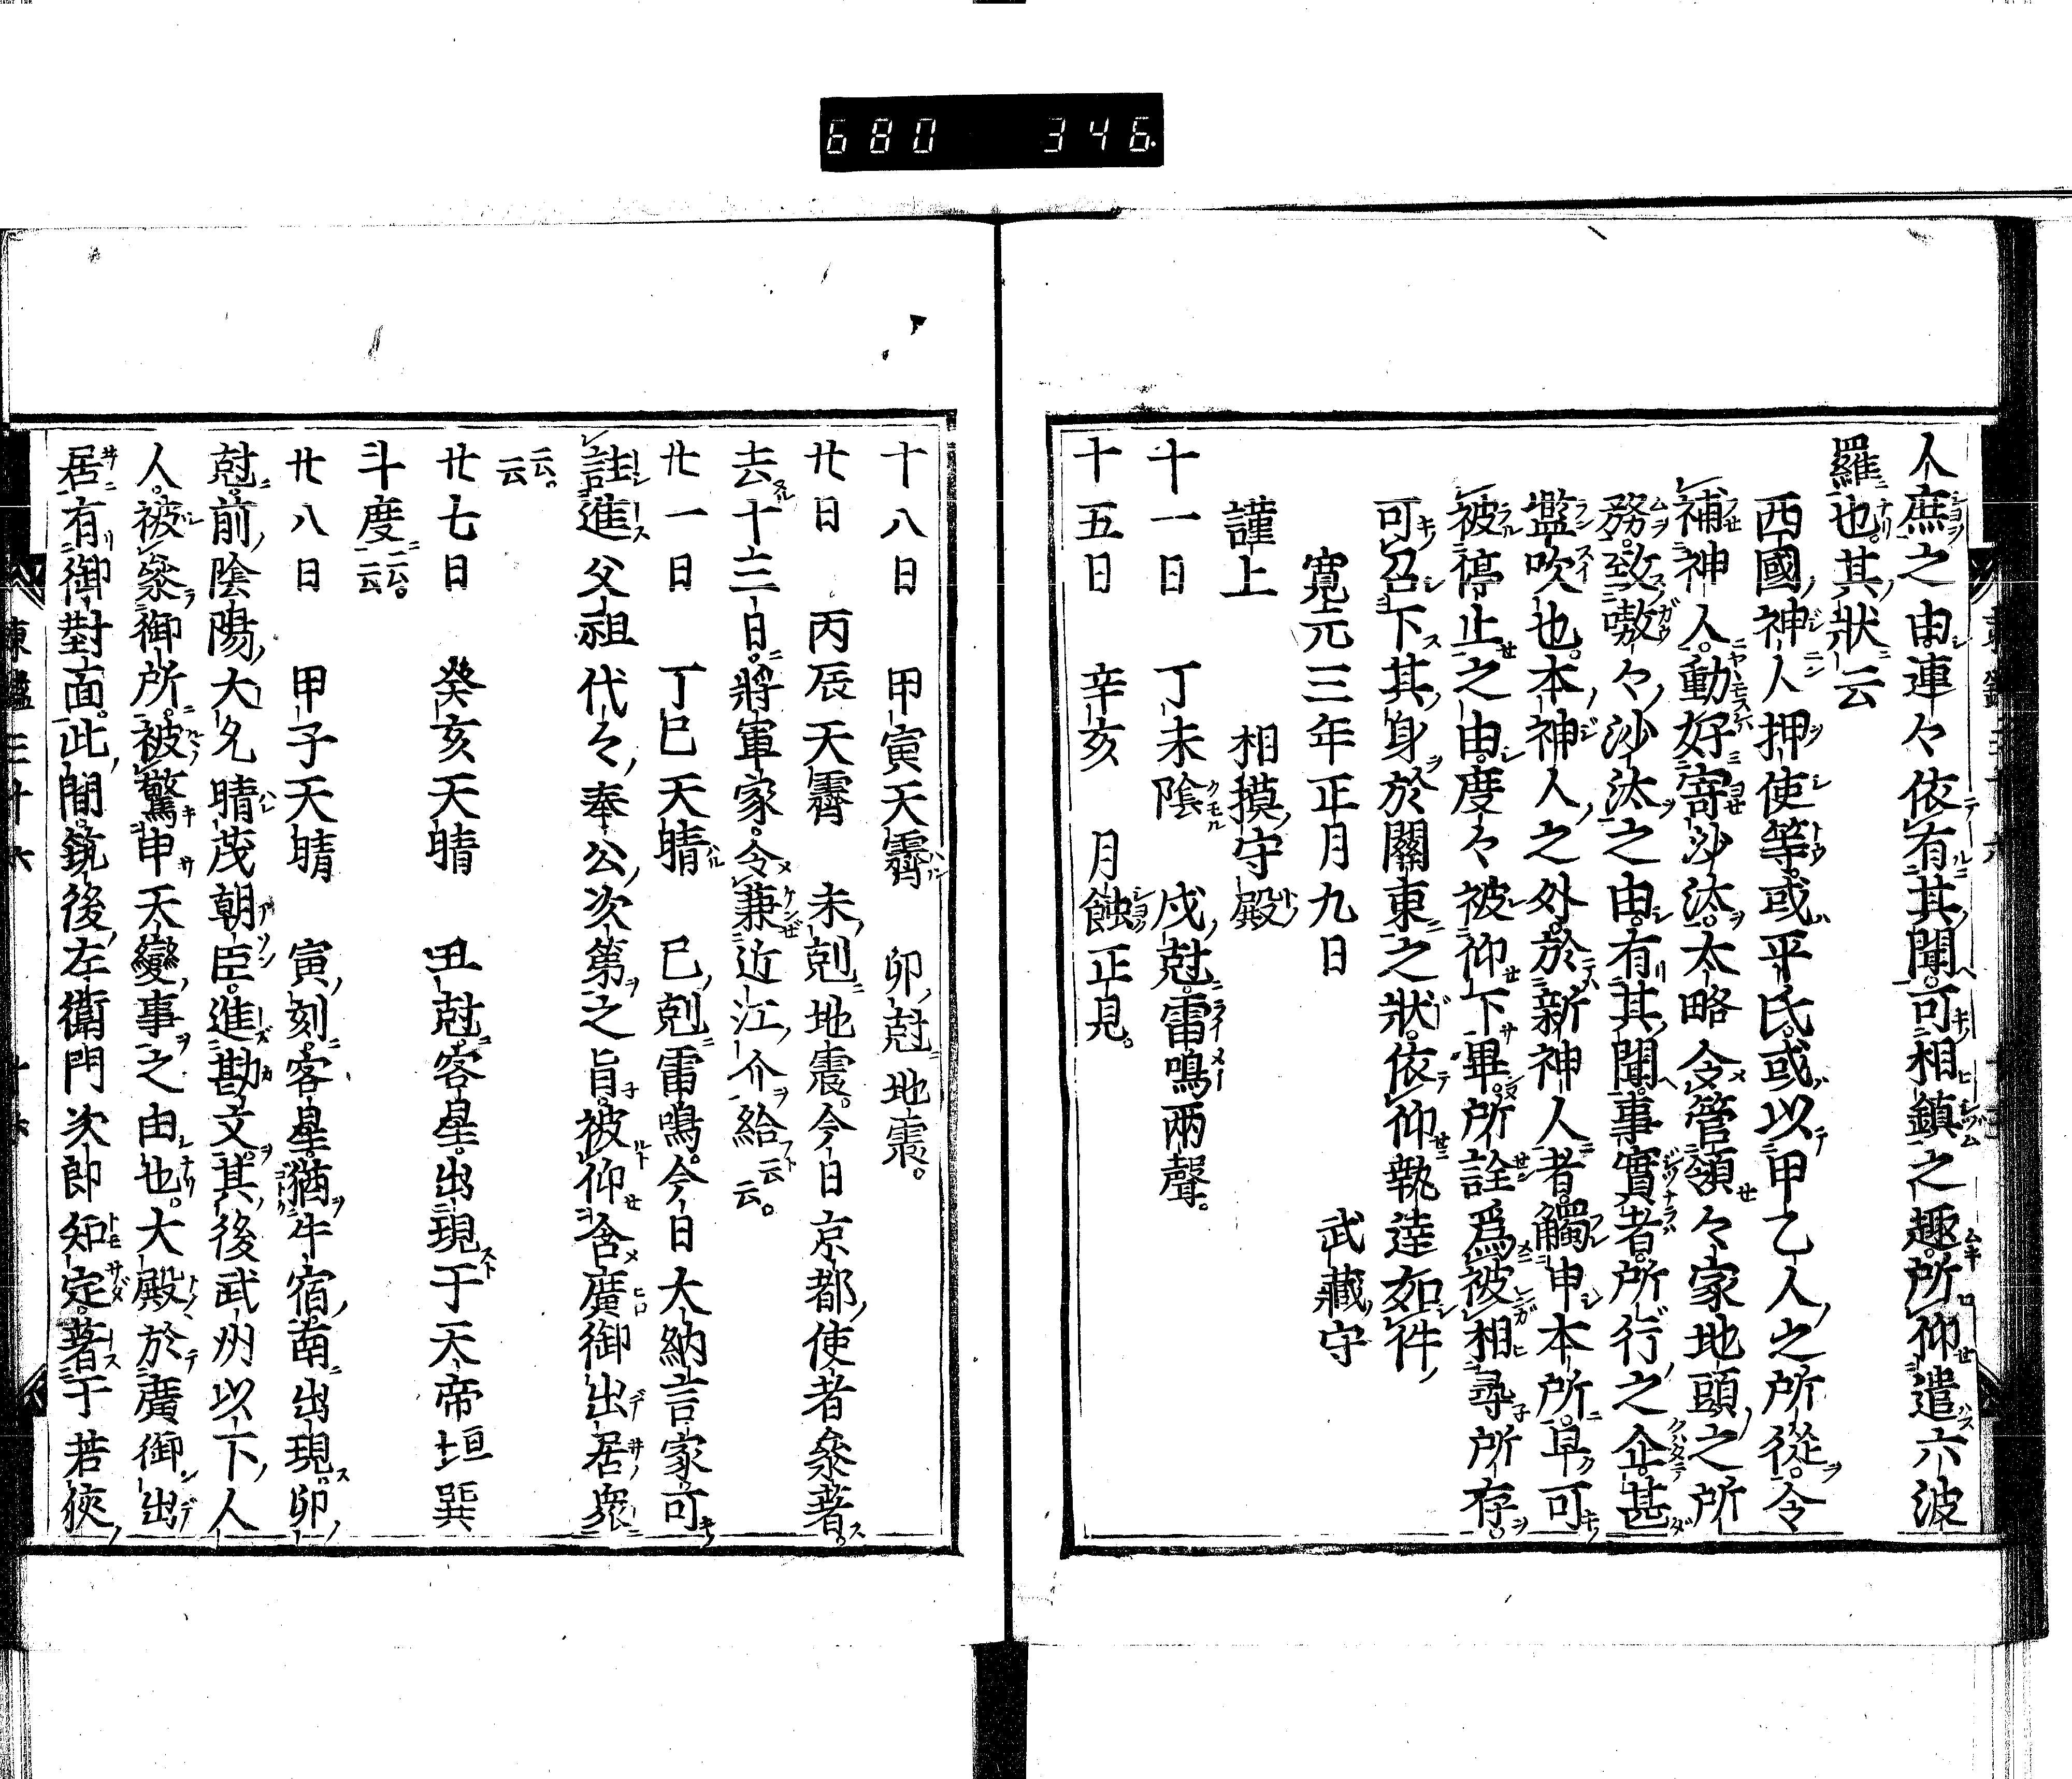 680 346
人庶之由連々依有其聞可相鎮之趣所仰遣六波
羅也其狀云
西國神人押使等或平氏或以甲乙人之所從令
補神人動好寄沙汰太略令管領々家地頭之所
務致嗷々沙汰之由有其聞事實者所行之企甚
濫吹也本神人之外於新神人者觸申本所早可
被停止之由度々被仰下畢所詮爲被相尋所存
可召下其身於關東之狀依仰執達如件
寛元三年正月九日
武藏守
謹上 相摸守殿
十一日 丁未陰 戌尅雷鳴兩聲
十五日 辛亥 月蝕正見
十八日 甲寅天霽 卯尅地震
廿日 丙辰天霽 未剋地震今日京都使者參著
去十三日將軍家令兼近江介給云云
廿一日 丁巳天晴 巳剋雷鳴今日大納言家可
註進父祖代々奉公次第之旨被仰含廣御出居衆
云云
廿七日 癸亥天晴 丑尅客星出現于天帝垣巽
斗度云云
廿八日 甲子天晴 寅刻客星猶牛宿南出現卯
尅前陰陽大允晴茂朝臣進勘文其後武州以下人
人被參御所被驚申天變事之由也大殿於廣御出
居有御對面此間筑後左衞門次郎知定著于若狹